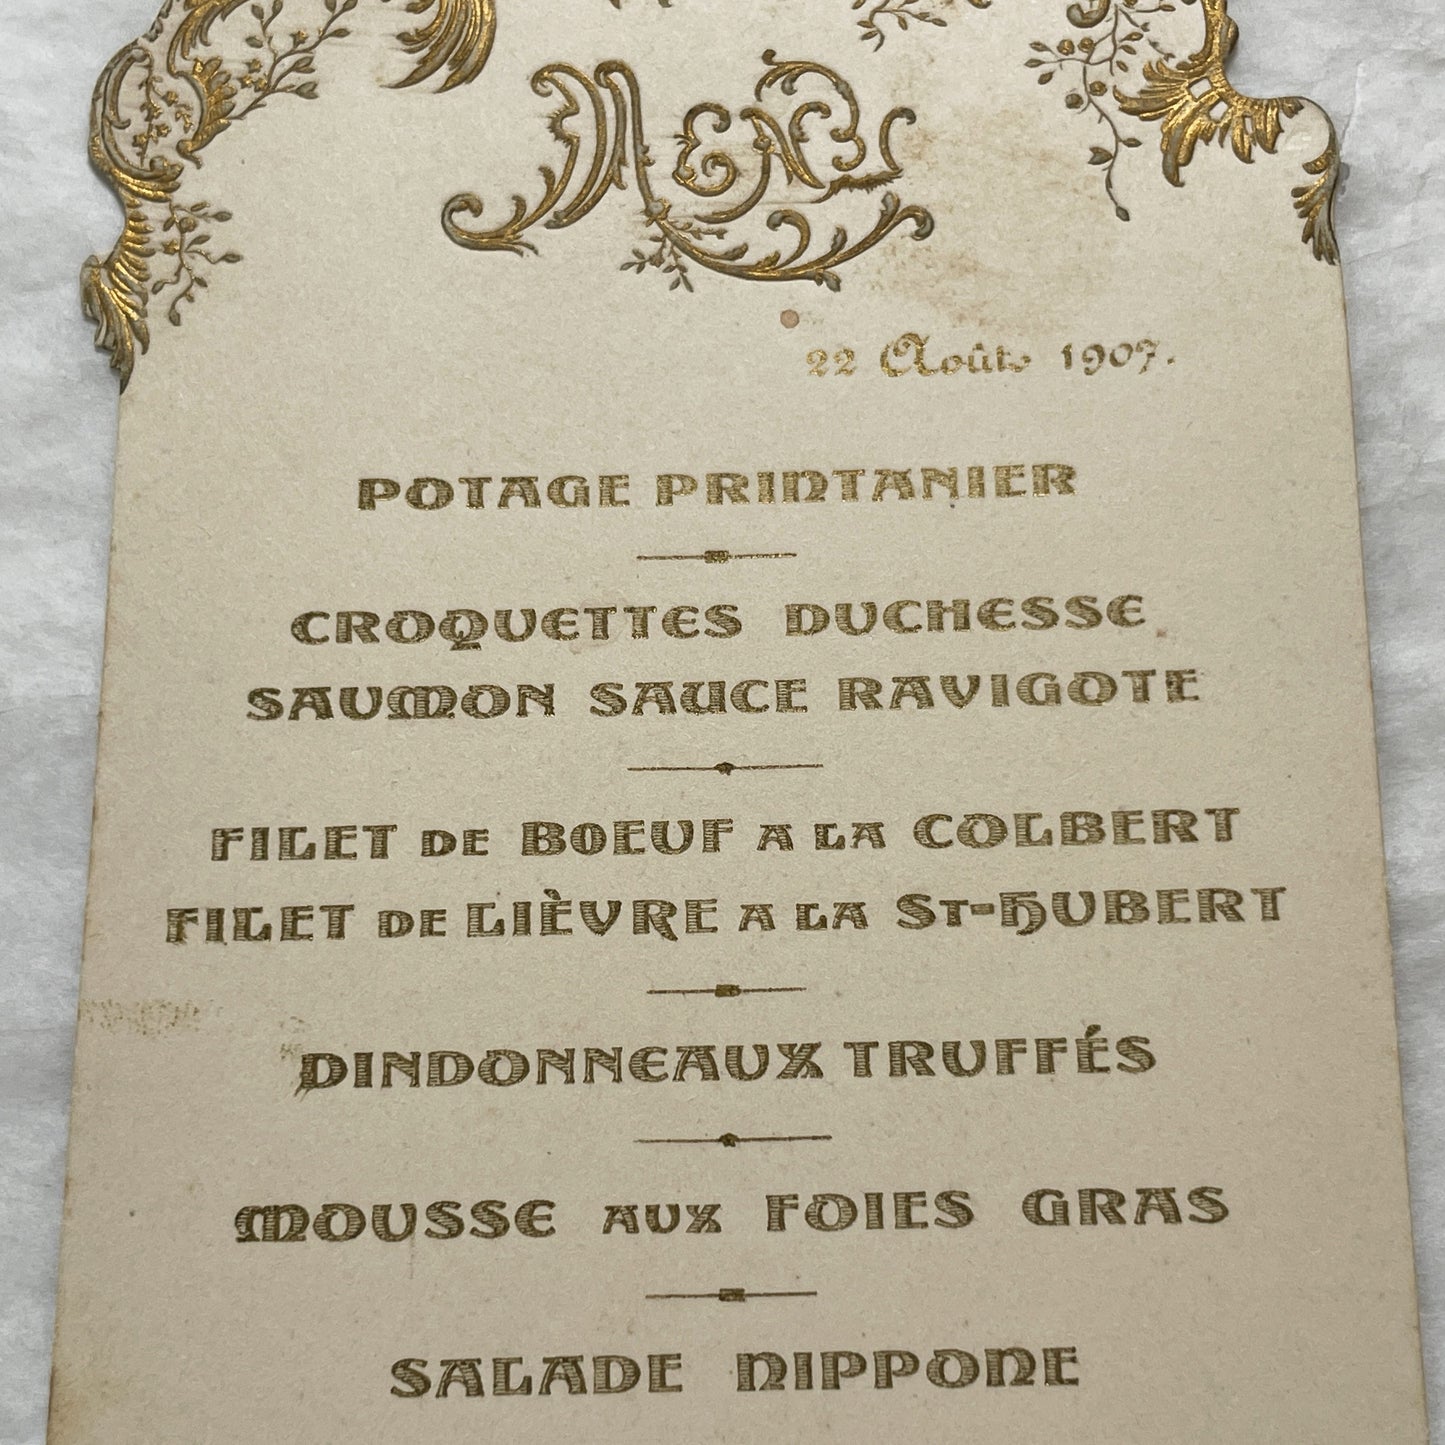 Menu
22 Août 1907.
POTAGE PRINTANIER
CROQUETTES DUCHESSE
SAUMON SAUCE RAVIGOTE
FILET DE BOEUF A LA COLBERT
FILET DE LIÈVRE A LA ST-HUBERT
DINDONNEAUX TRUFFÉS
MOUSSE AUX FOIES GRAS
SALADE NIPPONE